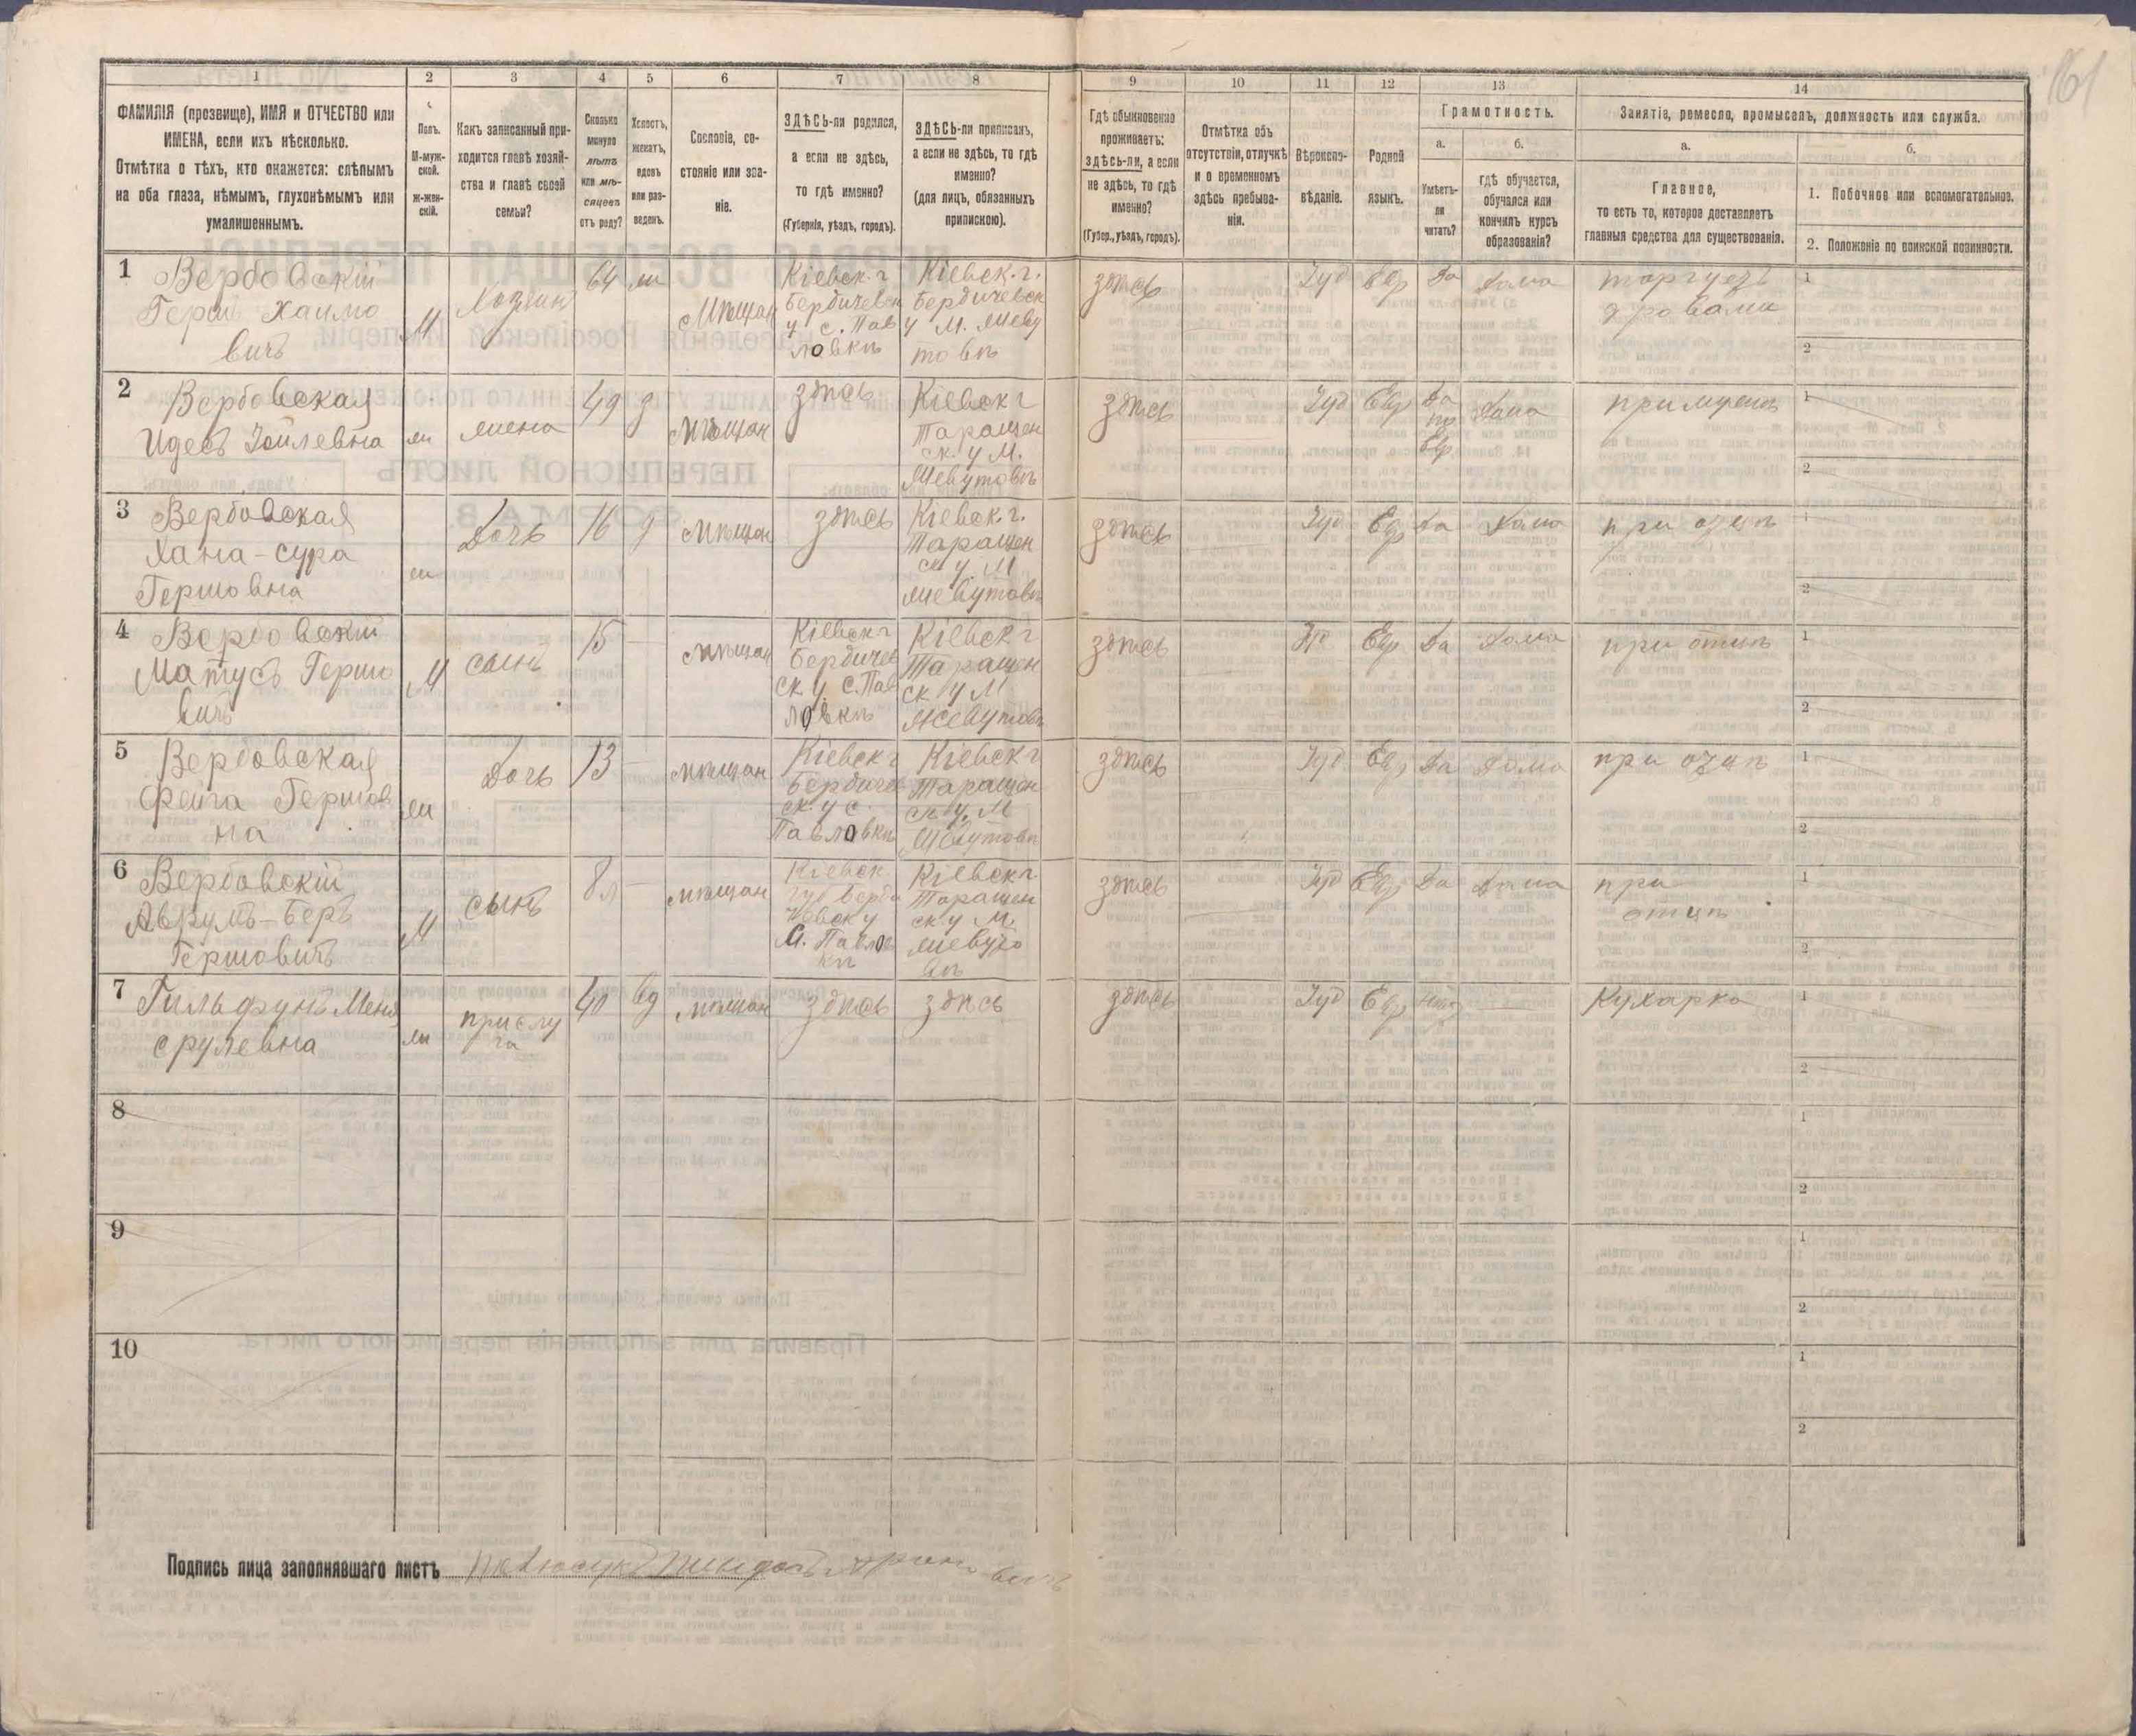 161
1
2
3
4
5
6
7
8
9
10
11
12
13
14
ФАМИЛІЯ (прозвище), ИМЯ и ОТЧЕСТВО или
ИМЕНА, если ихъ нѣсколько.
Отмѣтка о тѣхъ, кто окажется: слѣпымъ
на оба глаза, нѣмымъ, глухонѣмымъ или
умалишеннымъ.
Полъ.
М-муж-
ской.
ж-жен-
скій.
Какъ записанный при-
ходится главѣ хозяй-
ства и главѣ своей
семьи?
Сколько
минуло
лѣтъ
или мѣ-
сяцевъ
отъ роду?
Холостъ,
женатъ,
вдовъ
или раз-
веденъ.
Сословіе, со-
стояніе или зва-
ніе.
ЗДѢСЬ-ли родился,
а если не здѣсь,
то гдѣ именно?
(Губернія, уѣздъ, городъ).
ЗДѢСЬ-ли приписанъ,
а если не здѣсь, то гдѣ
именно?
(для лицъ, обязанныхъ
припискою).
Гдѣ обыкновенно
проживаетъ:
здѣсь-ли, а если
не здѣсь, то гдѣ
именно?
(Губер., уѣздъ, городъ).
Отмѣтка объ
отсутствіи, отлучкѣ
и о временномъ
здѣсь пребыва-
ніи.
Вѣроиспо-
вѣданіе.
Родной
языкъ.
Грамотность.
а.
Умѣетъ-
ли
читать?
б.
гдѣ обучается,
обучался или
кончилъ курсъ
образованія?
Занятіе, ремесло, промыселъ, должность или служба.
а.
Главное,
то есть то, которое доставляетъ
главныя средства для существованія.
б.
1. Побочное или вспомогательное.
2. Положеніе по воинской повинности.
1
Вербовскій
Герш Хаимо
вичъ
М
Хозяин
64
ж
Мѣщан
Кіевск. г
Бердичевск
у с. Пав
ловкѣ
Кіевск. г.
Бердичевск
у М. Жеву
товѣ
здѣсь
Іуд
Евр
Да
дома
торгуетъ
дровами
1
2
2
Вербовская
Идесъ Іойлевна
ж
жена
49
з
Мѣщан
здѣсь
Кіевск г
Таращен
ск. у М.
Жевутовѣ
здѣсь
Іуд
Евр
Да
по
Евр
дома
при мужѣ
1
2
3
Вербовская
Хана-сура
Гершовна
ж
Дочь
16
д
Мѣщан
здѣсь
Кіевск. г.
Таращен
ск у М
Жевутовѣ
здѣсь
Іуд
Евр
да
дома
при отцѣ
1
2
4
Вербовскій
Матусъ Гершо
вичъ
М
сынъ
15
Мѣщан
Кіевск г
Бердичев
ск. у с. Пав
ловкѣ
Кіевск г
Таращен
ск у М
Жевутовѣ
здѣсь
Евр
Да
дома
при отцѣ
1
2
5
Вербовская
Фейга Гершов
на
ж
Дочь
13
Мѣщан
Кіевск г
Бердичев
ск. у с.
Павловкѣ
Кіевск г
Таращен
ск у. М
Жевутовѣ
здѣсь
Іуд
Евр
Да
дома
при отцѣ
1
2
6
Вербовскій
Аврумъ-Беръ
Гершовичъ
М
сынъ
8 л
Мѣщан
Кіевск
М. Павлов
кѣ
Кіевск г
Таращен
ск у М.
Жевуто
вѣ
здѣсь
Іуд
Евр
Да
дома
при
отцѣ
1
2
7
Гильфунъ Меня
срулевна
ж
прислу
га
40
вд
Мѣщан
здѣсь
здѣсь
здѣсь
Іуд
Евр
нѣт
Кухарка
1
2
8
1
2
9
1
2
10
1
2
Подпись лица заполнявшаго листъ